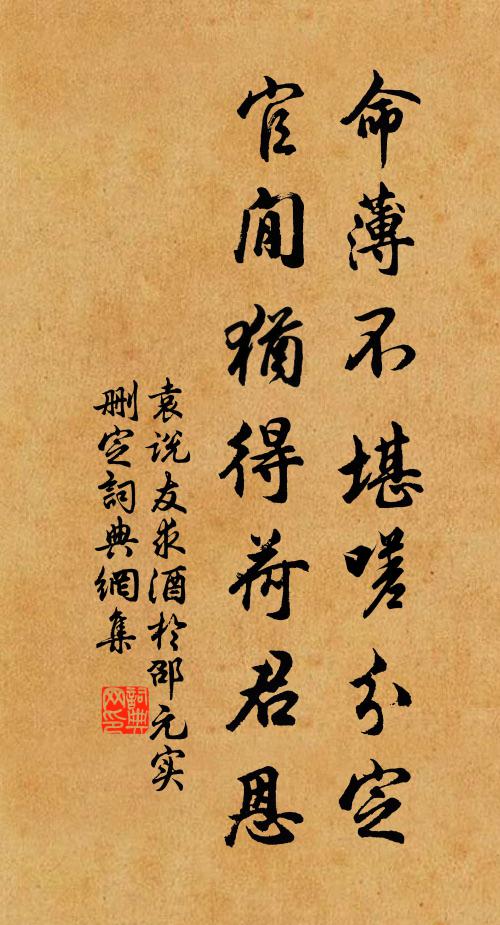 命薄不堪嗟分定
官閒猶得荷君恩
袁说友求酒於邵元实
删定詞典網集
詞典网印